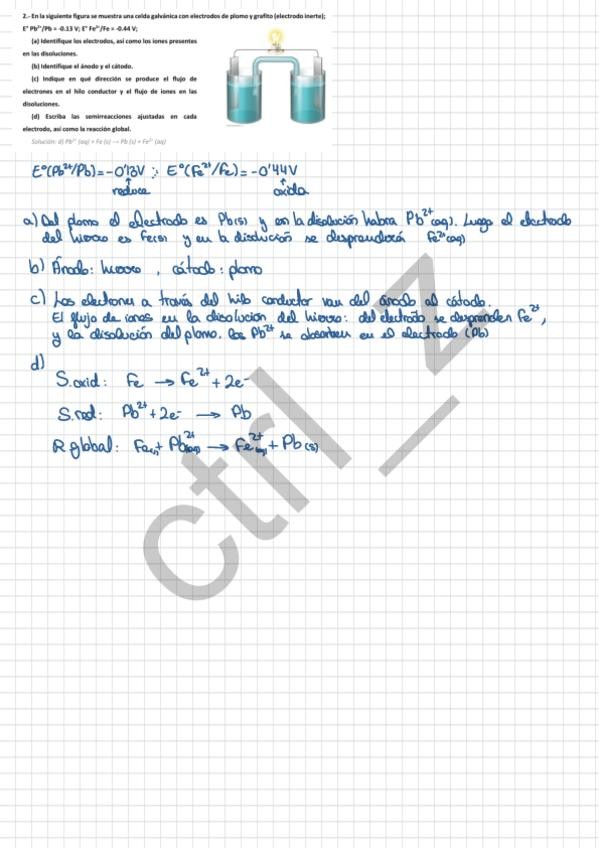 2.- En la siguiente figura se muestra una celda galvánica con electrodos de plomo y grafito (electrodo inerte);
E° Pb²⁺/Pb = -0.13 V; E° Fe²⁺/Fe = -0.44 V;
(a) Identifique los electrodos, así como los iones presentes
en las disoluciones.
(b) Identifique el ánodo y el cátodo.
(c) Indique en qué dirección se produce el flujo de
electrones en el hilo conductor y el flujo de iones en las
disoluciones.
(d) Escriba las semirreacciones ajustadas en cada
electrodo, así como la reacción global.
Solución: d) Pb²⁺ (aq) + Fe (s) → Pb (s) + Fe²⁺ (aq)
E°(Pb²⁺/Pb)=-0'13V ; E°(Fe²⁺/Fe)=-0'44V
reduce oxida
a) Del plomo el electrodo es Pb(s) y en la disolución habra Pb²⁺(aq). Luego el electrodo
del hierro es Fe(s) y en la disolución se desprenderá Fe²⁺(aq)
b) Ánodo: hierro , cátodo: plomo
c) Los electrones a través del hilo conductor van del ánodo al cátodo.
El flujo de iones en la disolucion del hierro: del electrodo se desprenden Fe²⁺,
y la disolución del plomo. los Pb²⁺ se absorben en el electrodo (Pb)
d)
S.oxid: Fe → Fe²⁺ + 2e⁻
S.red: Pb²⁺ + 2e⁻ → Pb
R global: Fe(s) + Pb²⁺(aq) → Fe²⁺(aq) + Pb(s)
ctrl_z